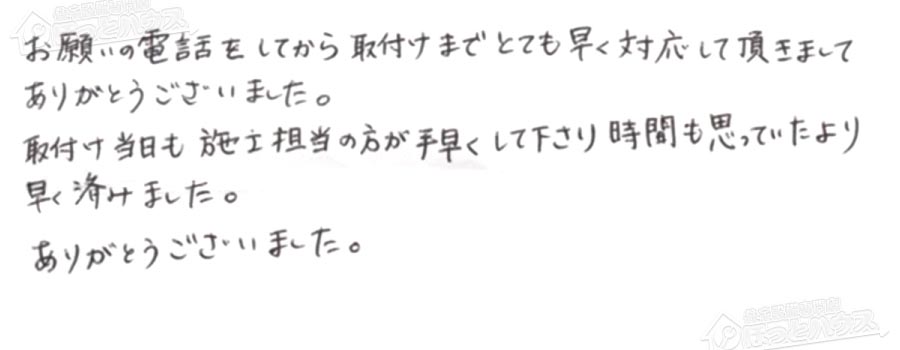 お願いの電話をしてから取付けまでとても早く対応して頂きまして
ありがとうございました。
取付け当日も施工担当の方が手早くして下さり時間も思っていたより
早く済みました。
ありがとうございました。
ほっとハウス